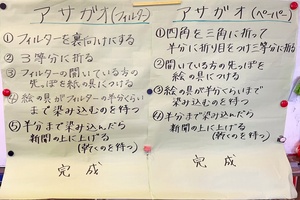 アサガオ(フィルター)
①フィルターを裏向けにする
②３等分に折る
③フィルターの開いている方の
先っぽを絵の具につける
④絵の具がフィルターの半分くらい
まで染み込むのを待つ
⑤半分まで染み込んだら
新聞の上に上げる
(乾くのを待つ)
完成
アサガオ(ペーパー)
①四角を三角に折って
半分に折り目をつけ三等分に折る
②開いている方の先っぽを
絵の具につける
③絵の具が半分くらいまで
染み込むのを待つ
④半分まで染み込んだら
新聞の上に上げる
(乾くのを待つ)
完成